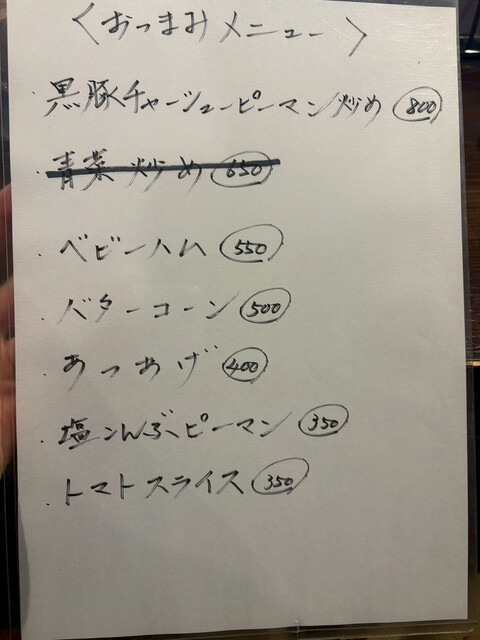 <おつまみメニュー>
・黒豚チャーシューピーマン炒め 800
・青菜炒め 650
・ベビーハム 550
・バターコーン 500
・あつあげ 400
・塩こんぶピーマン 350
・トマトスライス 350